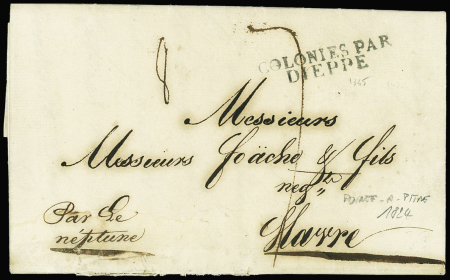 COLONIES PAR
DIEPPE
Messieurs
Messieurs Foäche & fils
neg.ts
Par Le
néptune
Havre
POINTE-A-PITRE
1824